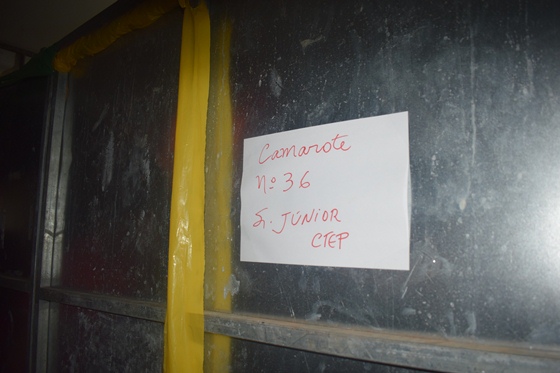 Camarote
Nº 36
Sr. JÚNIOR
CTEP